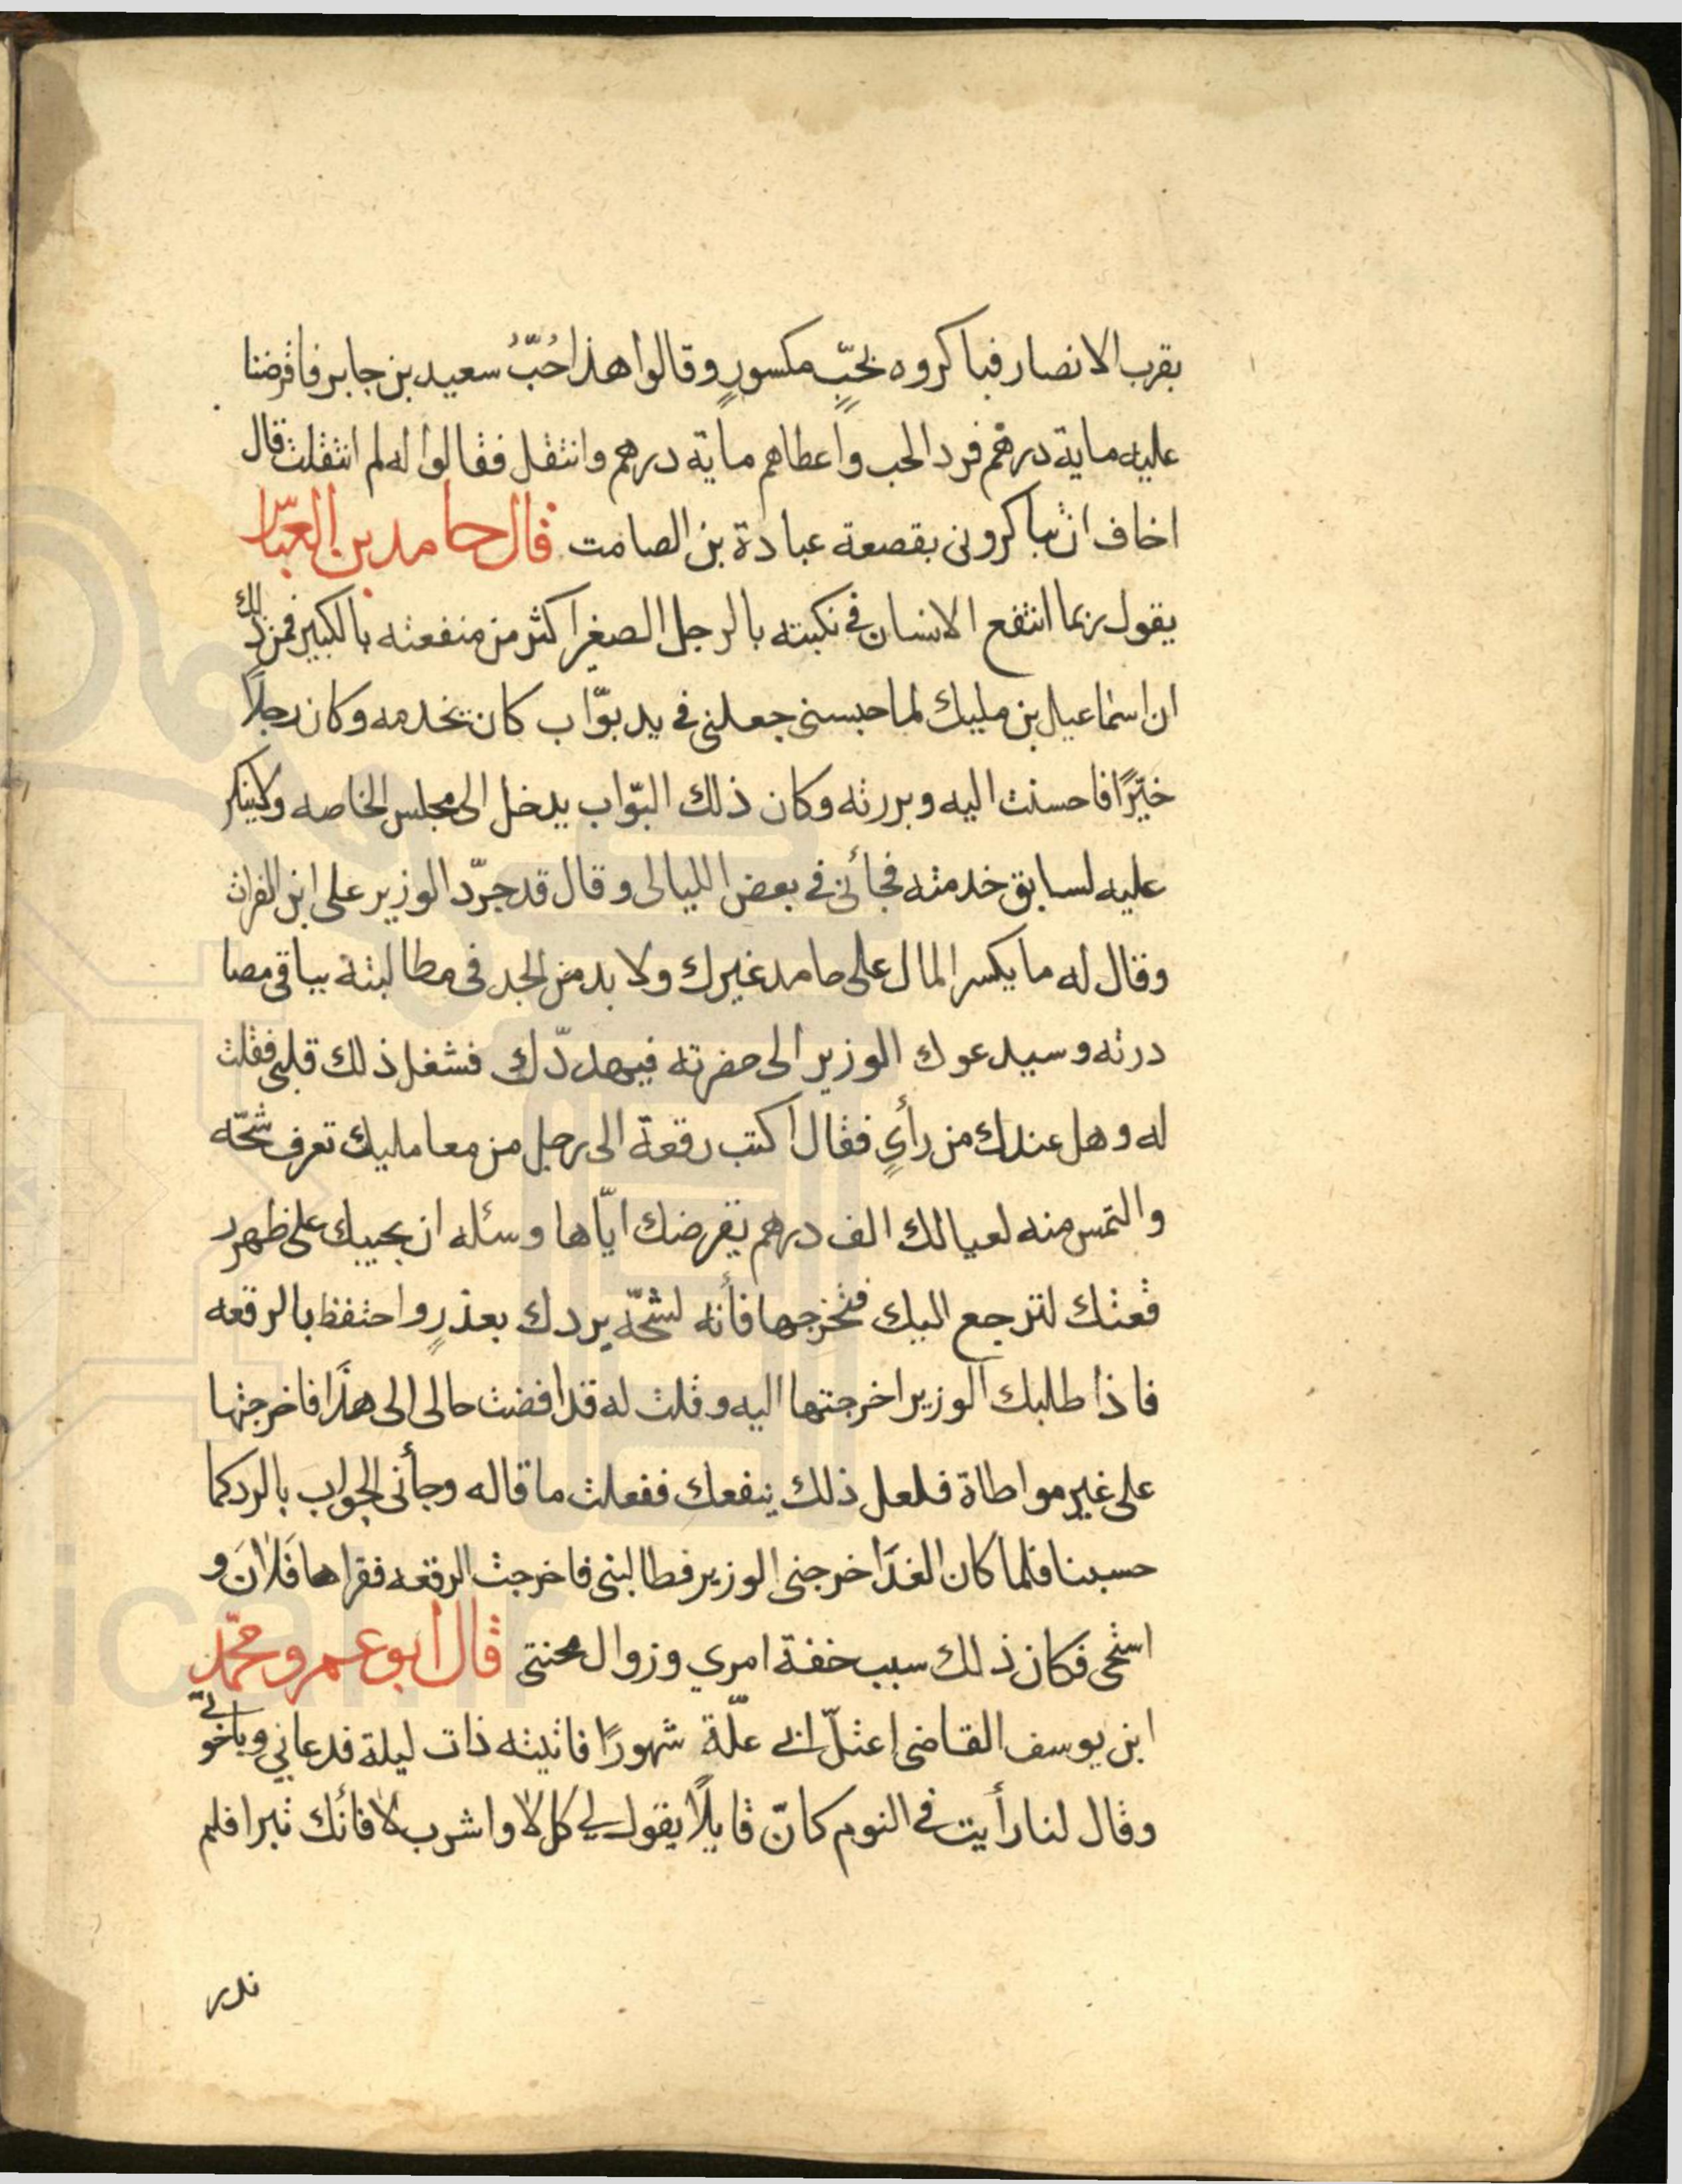 بقرب الانصار فباكروه بحُبٍّ مكسورٍ وقالوا هذا حُبُّ سعيد بن جابر فاقرضنا
عليه ماية درهم فرد الحب واعطاهم ماية درهم وانتقل فقالوا له لم انتقلت قال
اخاف ان يباكروني بقصعة عبادة بن الصامت قال حامد بن العبّاس
يقول ربما انتفع الانسان في نكبته بالرجل الصغير اكثر من منفعته بالكبير فمن ذلك
ان اسماعيل بن مليك لما حبسني جعلني في يد بوّاب كان يخدمه وكان رجلاً
خيّرًا فاحسنت اليه وبررته وكان ذلك البوّاب يدخل الى مجلس الخاصه ولاينكر
عليه لسابق خدمته فجأني في بعض الليالي وقال قد جرّد الوزير على ابن الفرات
وقال له ما يكسر المال على حامد غيرك ولا بد من الجد في مطالبته بباقي مصا
درته وسيدعوك الوزير الى حضرته فيهددّك فشغل ذلك قلبي فقلت
له وهل عندك من رأيٍ فقال اكتب رقعة الى رجل من معامليك تعرف شحّه
والتمس منه لعيالك الف درهم يقرضك ايّاها وسئله ان يجيبك على ظهر
رقعتك لترجع اليك فتخرجها فأنه لشحّه يردك بعذرٍ واحتفظ بالرقعه
فاذا طلبك الوزير اخرجتها اليه وقلت له قد افضت حالي الى هذا فاخرجتها
على غير مواطاة فلعل ذلك ينفعك ففعلت ما قاله وجأني الجواب بالرد كما
حسبنا فلما كان الغد اخرجني الوزير فطالبني فاخرجت الرقعه فقراها فلان و
استحى فكان ذلك سبب خفة امري وزوال محنتي قال ابو عمرو محمّد
ابن يوسف القاضي اعتلّ ابي علّة شهورًا فاتيته ذات ليلة فدعاني وباخوتي
وقال لنا رأيت في النوم كانّ قايلاً يقول لي كل لا واشرب لا فأنك تبرا فلم
ندر